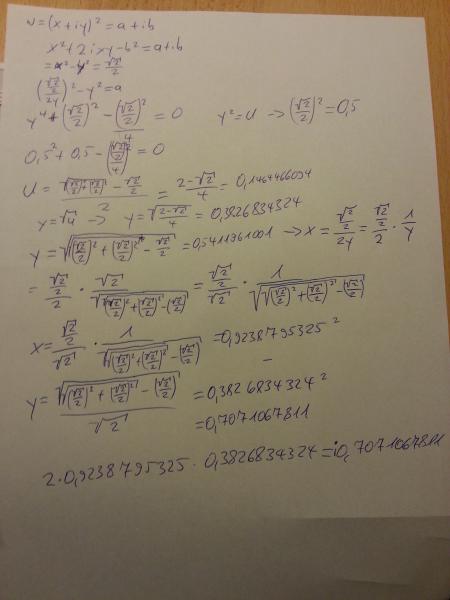 w=(x+iy)² = a+ib
x²+2ixy-b² = a+ib
= x²-y² = √2/2
((√2/2)/2y)² - y² = a
y⁴+(√2/2)² - (√2/2)²/4 = 0   y² = u → (√2/2)² = 0,5
0,5²+0,5-(√2/2)²/4 = 0
u = (√((√2/2)²+(√2/2)²) - √2/2)/2 = (2-√2)/4 = 0,1464466094
y=√u → y=√((2-√2)/4) = 0,3826834324
y = √(√((√2/2)²+(√2/2)²) - √2/2) = 0,5411961001 → x = (√2/2)/2y = √2/2 · 1/y
= (√2/2)/2 · √2/√(√((√2/2)²+(√2/2)²)-(√2/2)) = (√2/2)/√2 · 1/√(√((√2/2)²+(√2/2)²)-(√2/2))
x = (√2/2)/√2 · 1/√(√((√2/2)²+(√2/2)²)-(√2/2)) = 0,9238795325²
-
y = √(√((√2/2)²+(√2/2)²)-(√2/2))/√2 = 0,3826834324²
= 0,7071067811
2·0,9238795325·0,3826834324 = i0,7071067811